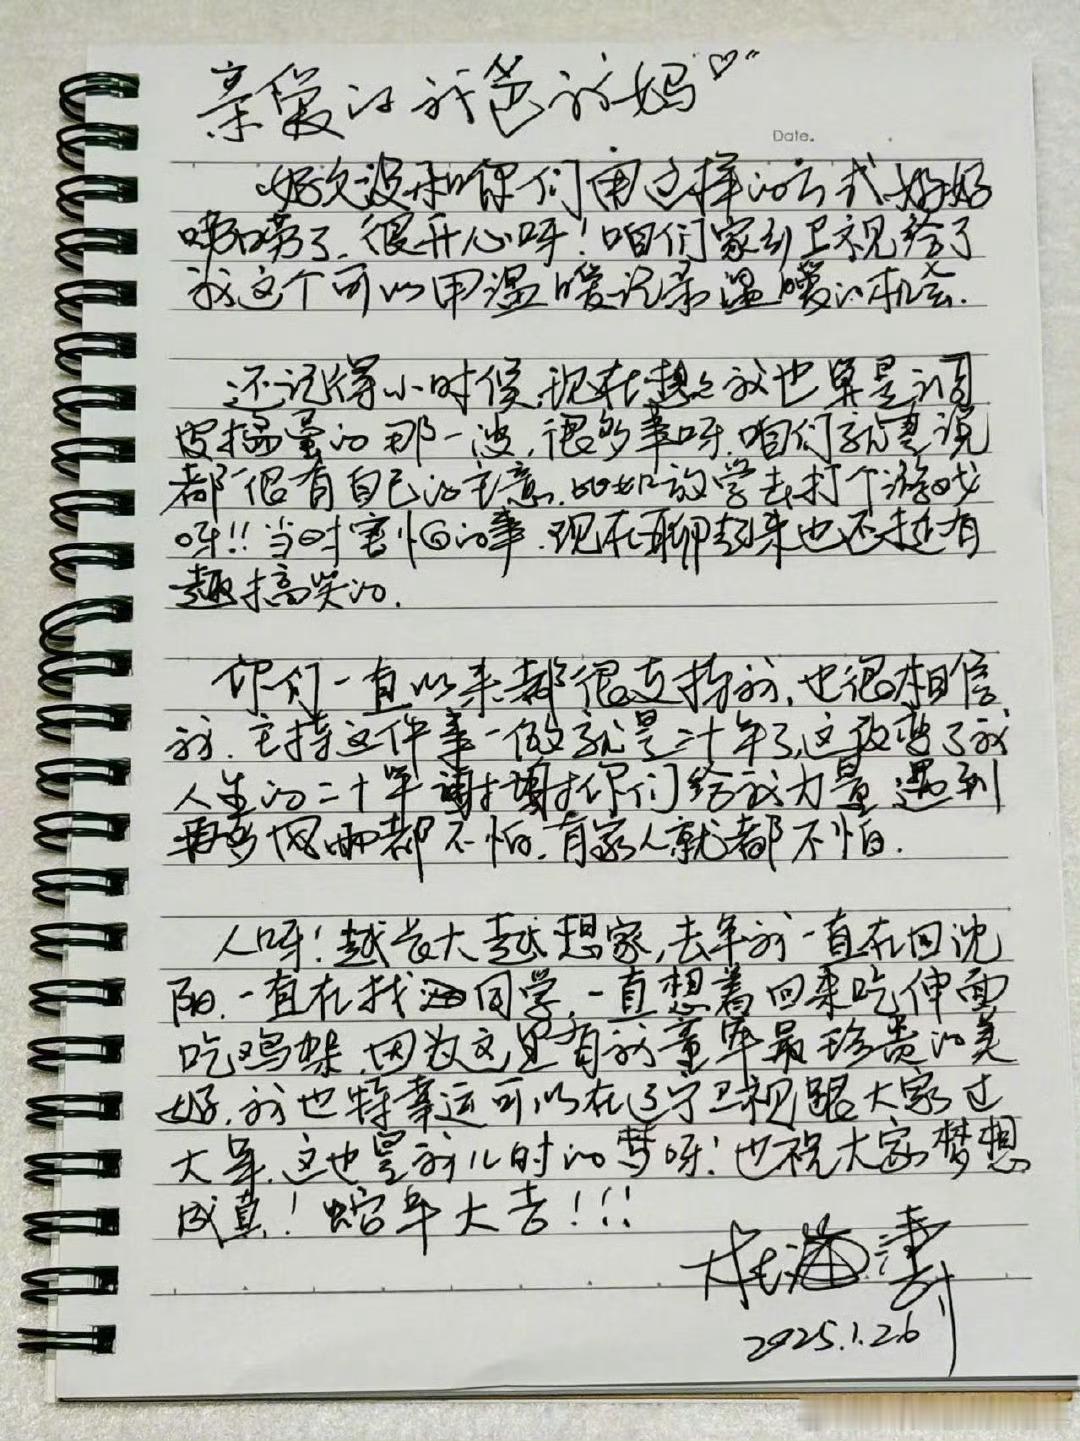 亲爱的我爸我妈
Date.
好久没和你们用这样的方式好好
唠唠了，很开心呀！咱们家到卫视给了
我这个可以用温暖记录温暖的机会.
还记得小时候，现在想想我也算是调
皮捣蛋的那一波，很多事呀，咱们就要说
都很有自己的主意，比如放学去打个游戏
呀!!当时害怕的事，现在聊起来也还挺有
趣搞笑的.
你们一直以来都很支持我，也很相信
我，主持这件事一做就是二十年了，这改变了我
人生的二十年谢谢你们给我力量 遇到
再多风雨都不怕，有家人就都不怕.
人呀！越长大越想家，去年我一直在回沈
阳，一直在找同学，一直想着回来吃伸面
吃鸡架，因为这里有我童年最珍贵的美
好，我也特幸运可以在辽宁卫视跟大家过
大年，这也是我儿时的梦呀！也祝大家梦想
成真！蛇年大吉！！！
杜海涛
2025.1.26